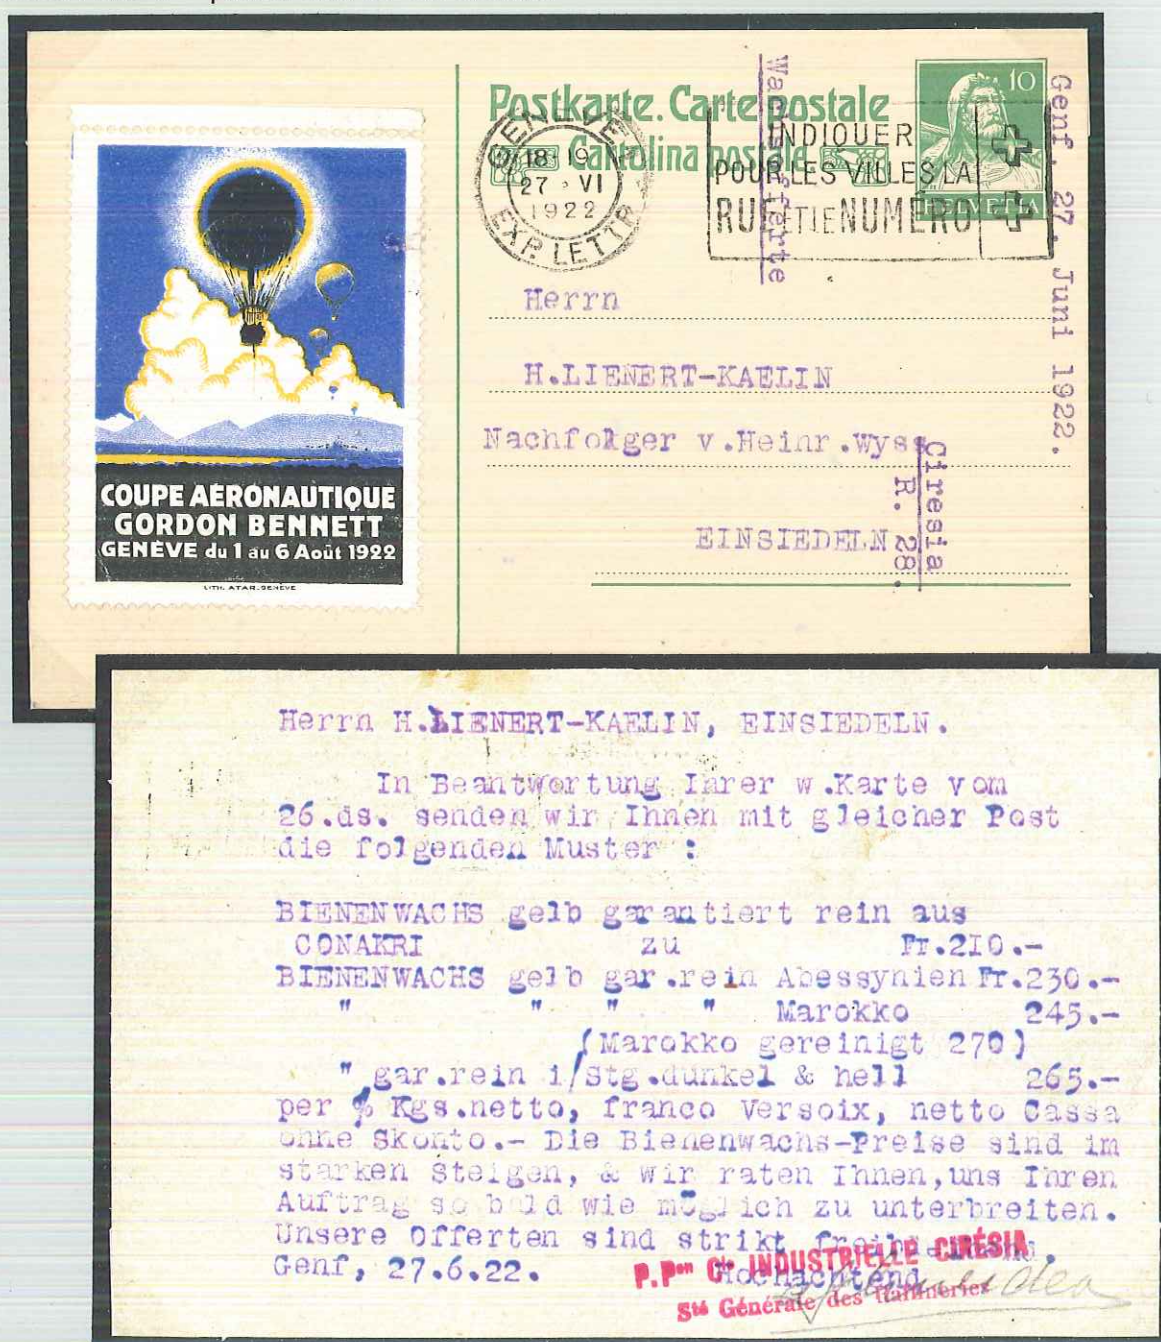 COUPE AÉRONAUTIQUE
GORDON BENNETT
GENÈVE du 1 au 6 Août 1922
LITH. ATAR. GENÈVE
Postkarte. Carte postale
Cartolina postale
GENÈVE
18-19
27 . VI
1922
EXP. LETTR
INDIQUER
POUR LES VILLES LA
RUE ET LE NUMÉRO
10
HELVETIA
Genf. 27. Juni 1922.
Wachsofferte
Herrn
H.LIENERT-KAELIN
Nachfolger v.Heinr.Wyss
EINSIEDELN
Ciresia
R. 28.
Herrn H.LIENERT-KAELIN, EINSIEDELN.
In Beantwortung Ihrer w.Karte vom
26.ds. senden wir Ihnen mit gleicher Post
die folgenden Muster :
BIENENWACHS gelb garantiert rein aus
CONAKRI zu Fr.210.-
BIENENWACHS gelb gar.rein Abessynien Fr.230.-
" " " " Marokko 245.-
(Marokko gereinigt 270)
" gar.rein i/Stg.dunkel & hell 265.-
per % Kgs.netto, franco Versoix, netto Cassa
ohne Skonto.- Die Bienenwachs-Preise sind im
starken Steigen, & wir raten Ihnen,uns Ihren
Auftrag so bald wie möglich zu unterbreiten.
Unsere Offerten sind strikt freibleibend.
Genf, 27.6.22. Hochachtend
P.Pon Cie INDUSTRIELLE CIRÉSIA
Sté Générale des Raffineries